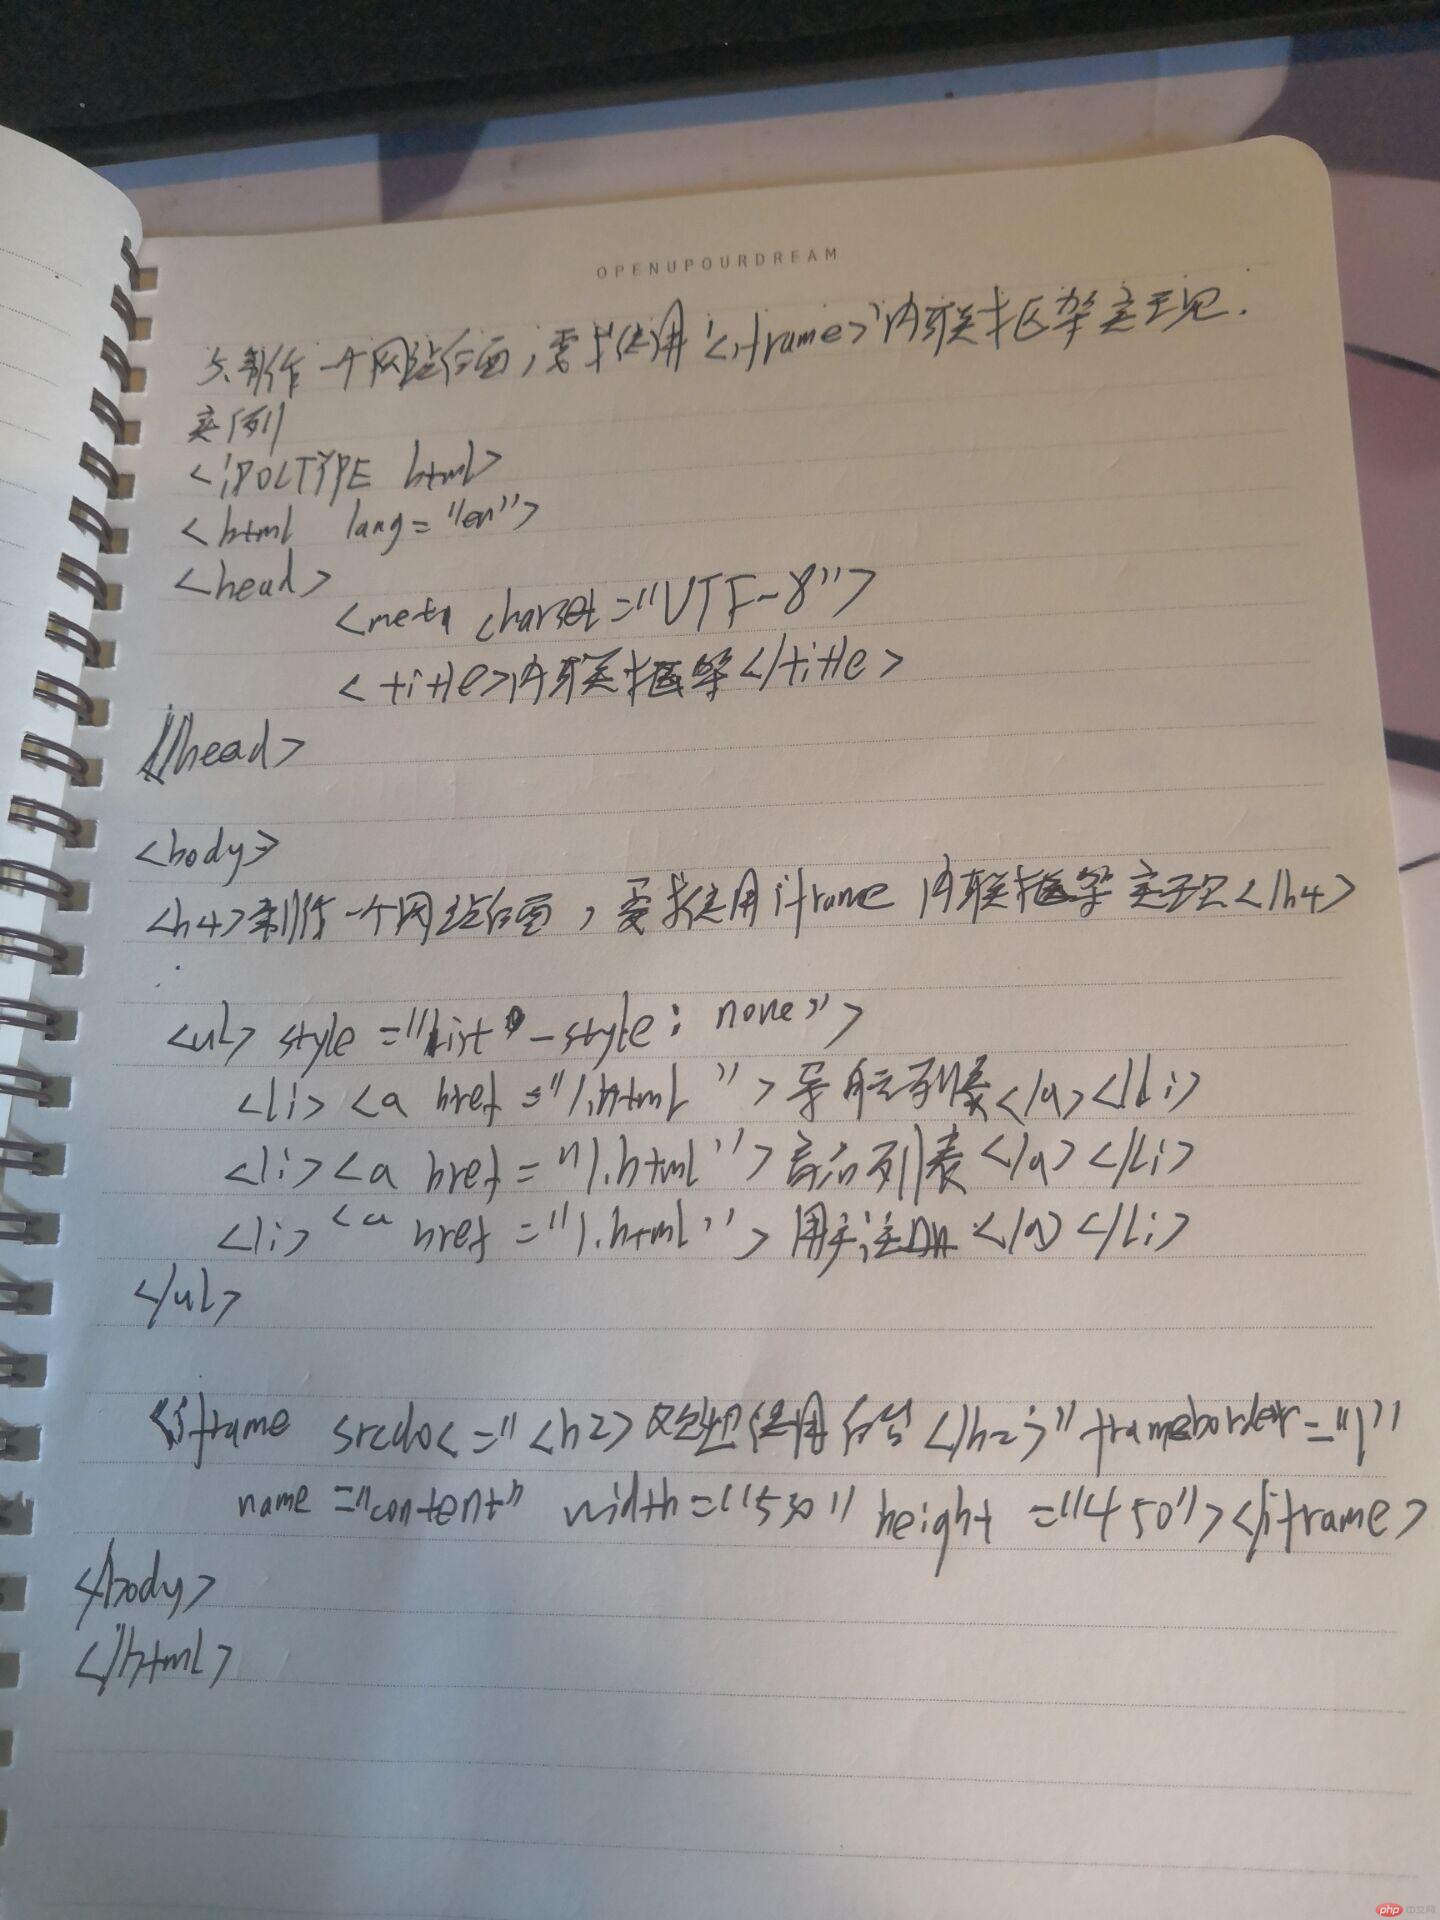 OPENUPOURDREAM
5、制作一个网站后面，要求使用'<iframe>'内联框架实现.
实例
<!DOCTYPE html>
<html lang="en">
<head>
<meta charset="UTF-8">
<title>内联框架</title>
</head>
<body>
<h4>制作一个网站后面，要求使用iframe 内联框架实现</h4>
<ul> style="list-style: none">
<li><a href="1.html">导航列表</a></li>
<li><a href="1.html">商品列表</a></li>
<li><a href="1.html">用户注册</a></li>
</ul>
<iframe srcdoc="<h2>欢迎使用后台</h2>" frameborder="1"
name="content" width="530" height="450"></iframe>
</body>
</html>
php 中文网